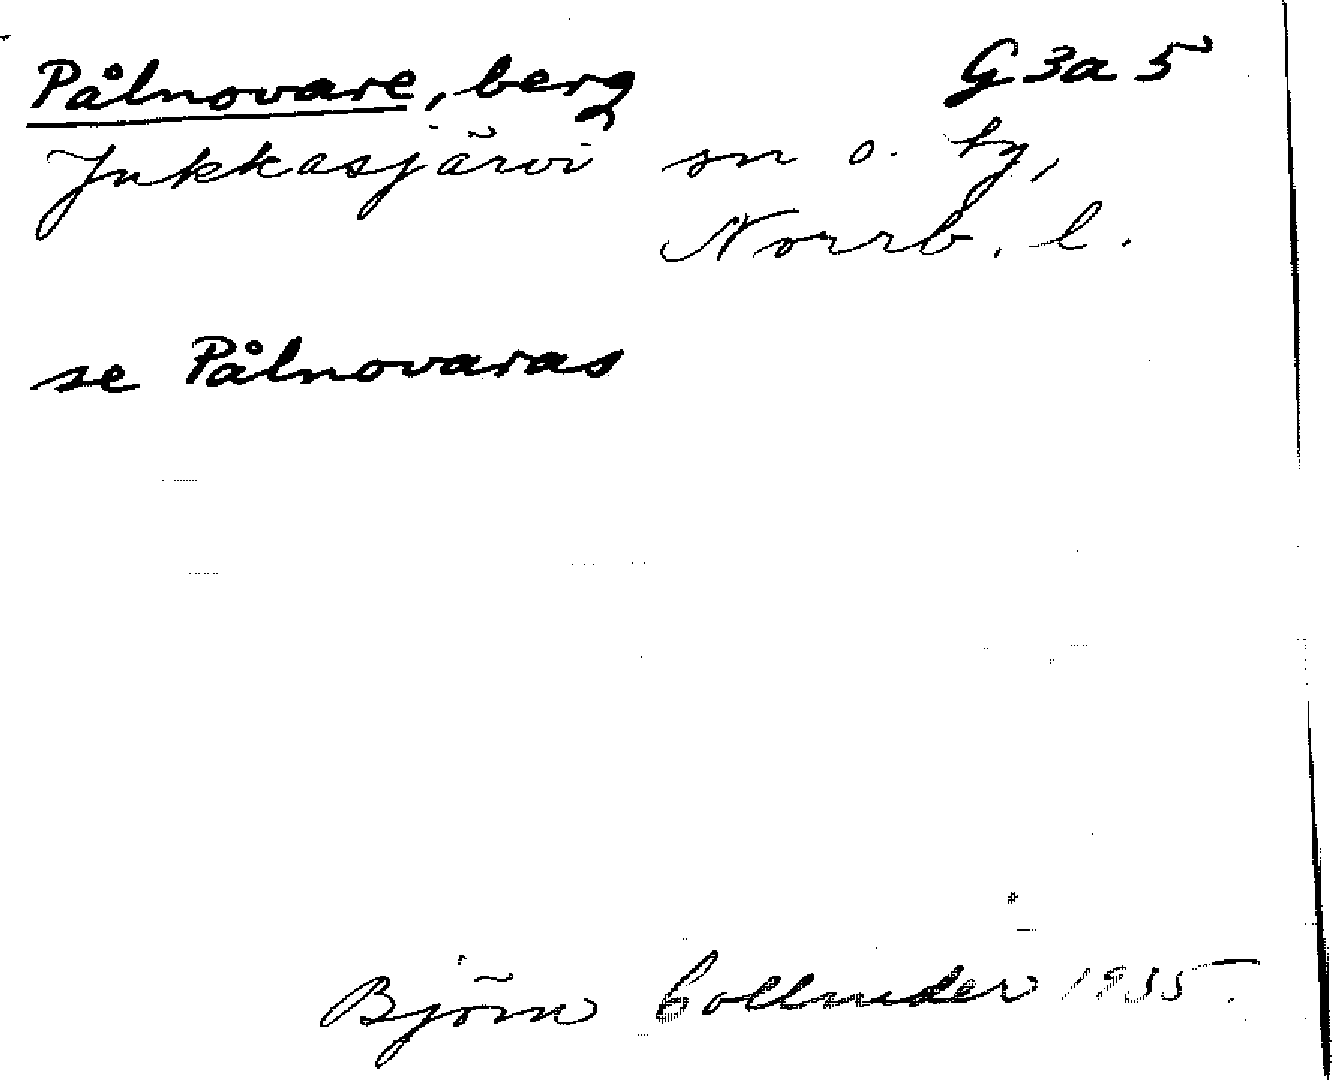 Pålnovare, berg G 3a 5
Jukkasjärvi sn o. tg,
Norrb. l.
se Pålnovaras
Björn Collinder 1935.